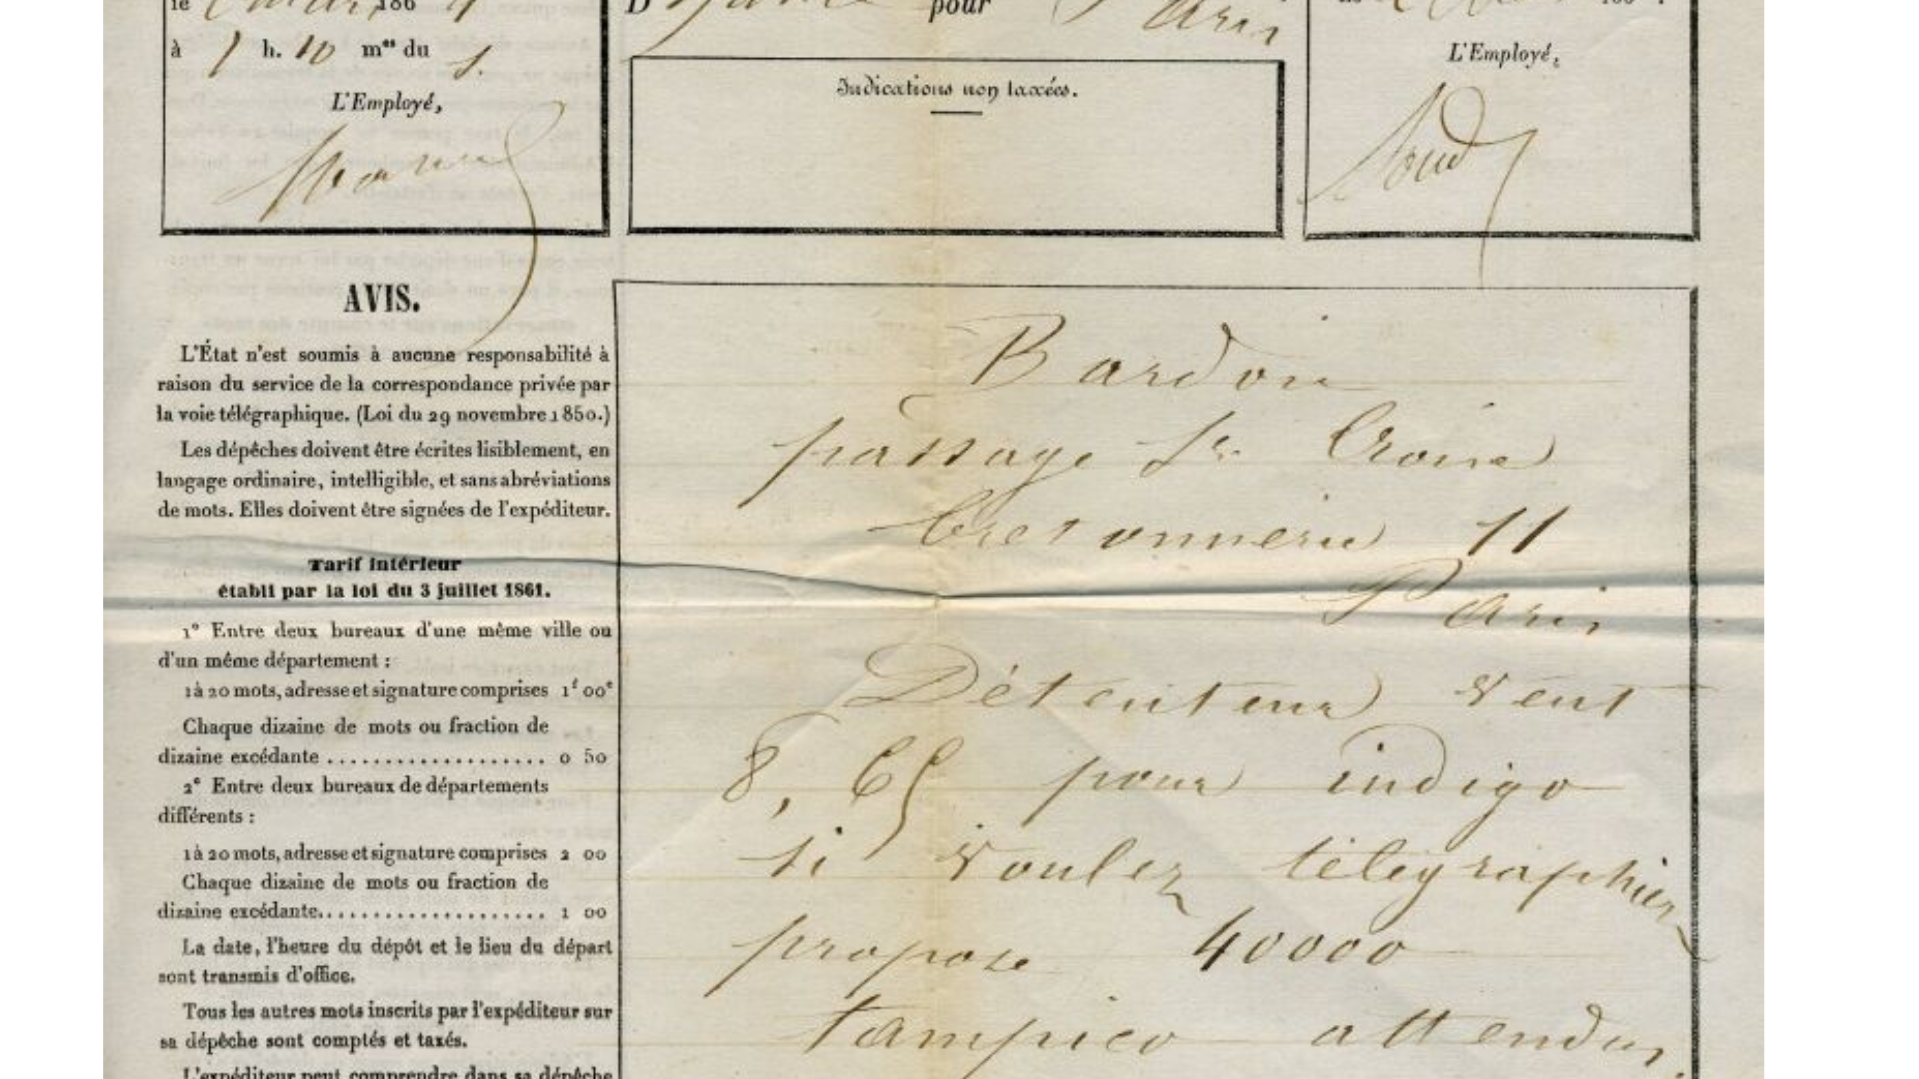 le 186
à 1 h. 10 m^es du s.
L'Employé,
D pour Paris
Indications non taxées.
L'Employé,
AVIS.
L'État n'est soumis à aucune responsabilité à
raison du service de la correspondance privée par
la voie télégraphique. (Loi du 29 novembre 1850.)
Les dépêches doivent être écrites lisiblement, en
langage ordinaire, intelligible, et sans abréviations
de mots. Elles doivent être signées de l'expéditeur.
Tarif intérieur
établi par la loi du 3 juillet 1861.
1° Entre deux bureaux d'une même ville ou
d'un même département :
1 à 20 mots, adresse et signature comprises 1^f 00^c
Chaque dizaine de mots ou fraction de
dizaine excédante .................. 0 50
2° Entre deux bureaux de départements
différents :
1 à 20 mots, adresse et signature comprises 2 00
Chaque dizaine de mots ou fraction de
dizaine excédante................... 1 00
La date, l'heure du dépôt et le lieu du départ
sont transmis d'office.
Tous les autres mots inscrits par l'expéditeur sur
sa dépêche sont comptés et taxés.
L'expéditeur peut comprendre dans sa dépêche
Bardou
passage Ste Croix
bretonnerie 11
Paris
Détenteur veut
8,65 pour indigo
si voulez télégraphiez
propose 40000
tampico attendus